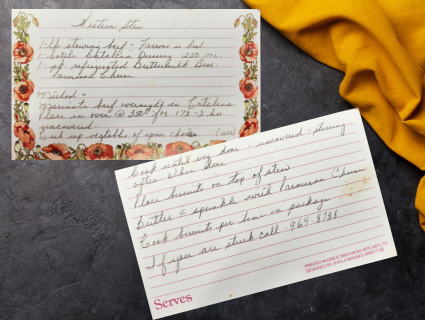 Western Stew
1-lb stewing beef -
1-bottle Catallina Dressing 250 ml.
1-pkg refrigerated Buttermilk Bis.
Parmesan Cheese
Method -
Marinate beef overnight in Catalina
Place in oven @ 350° for 1 1/2 - 2 hr
uncovered
Cut up vegetables of your choice. (over)
Cook until veg. done - uncovered - stirring
often. When done
Place biscuits on top of stew
Butter & sprinkle with Parmesan Cheese
Cook biscuits per time on package
If you are stuck call - 969-8788
Serves
PRINTED IN GREAT BRITAIN BY
DESIGNED BY